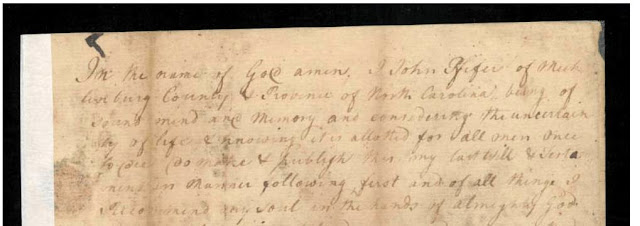 In the name of God amen, I John Pfifer of Meck
lenburg County & Province of North Carolina, being of
Sound mind and Memory and considering the uncertain
ty of life & knowing it is allotted for all men once
to Die Do make & publish this my last Will & Testa
ment in Manner following first and of all things I
Recommend my Soul in the hands of almighty God